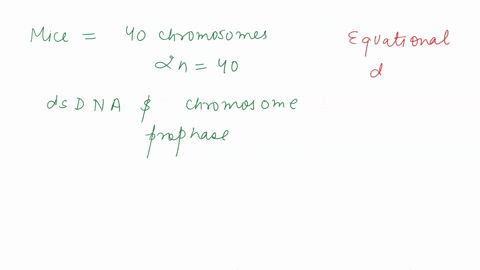 Mice = 40 chromosomes
2n = 40
dsDNA & chromosome
prophase
Equational
d